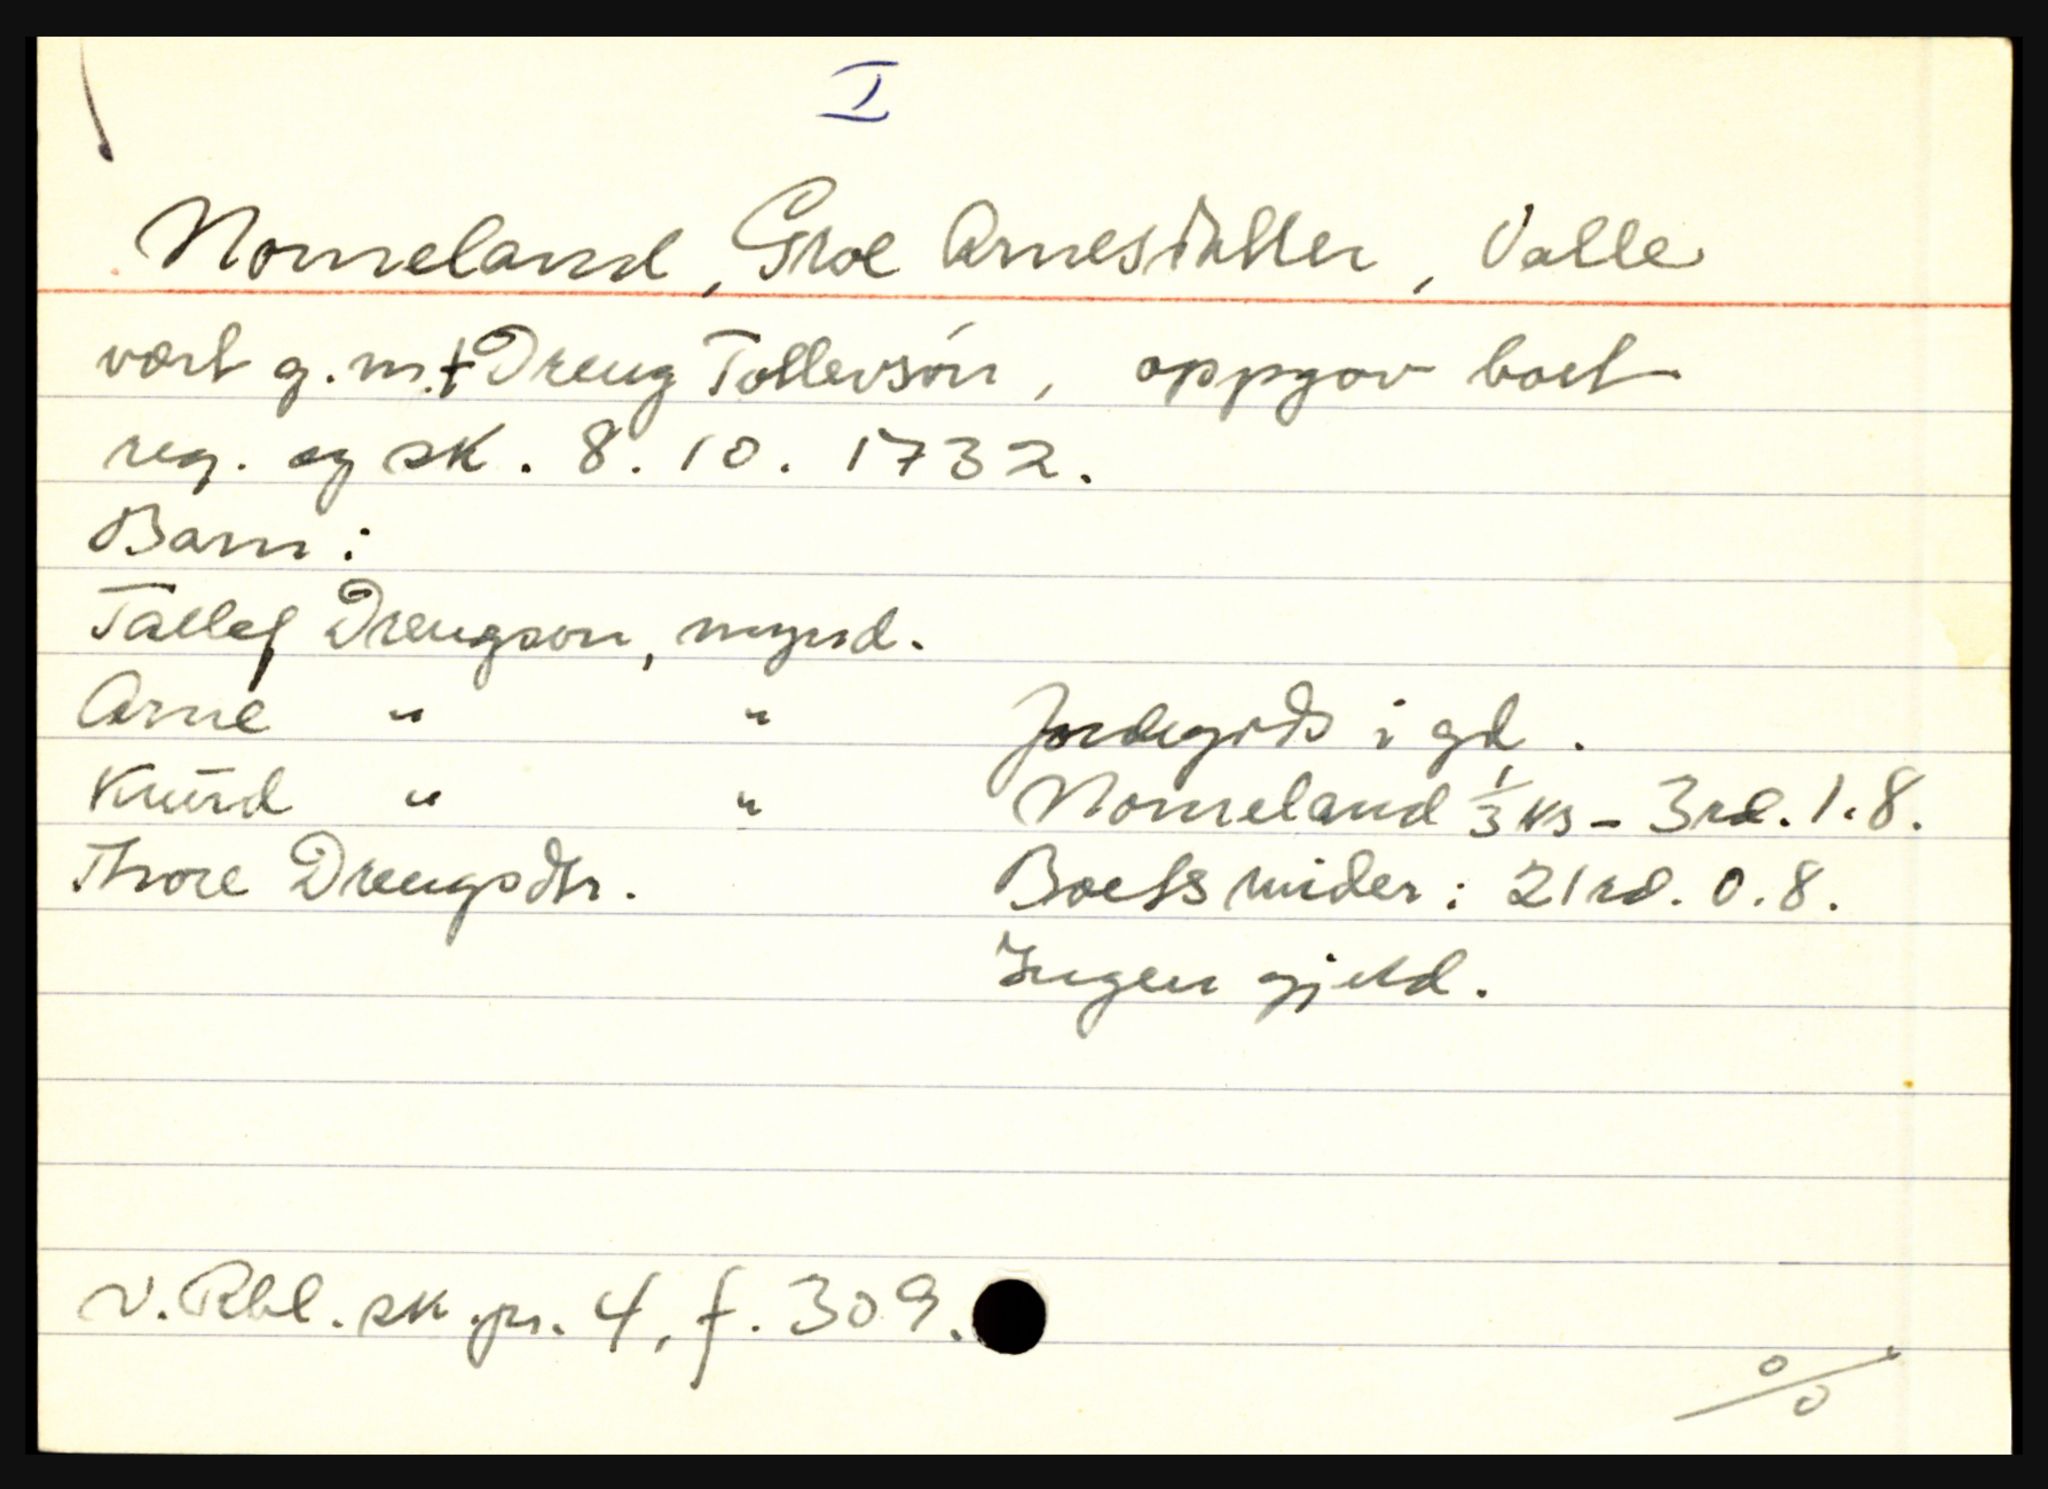 I
Nomeland, Groe Arnesdatter, Valle
vært g.m. † Dreng Tollevsön, oppgav boet
reg. og sk. 8.10.1732.
Barn:
Tallef Drengson, mynd.
Arne " "
Knud " "
Thore Drengsdtr.
Jordegods i gd.
Nomeland 1/3 ks – 3 rd. 1.8.
Boets midler: 21 rd. 0.8.
Ingen gjeld.
V. Rbl. sk.pr. 4, f. 309.
%